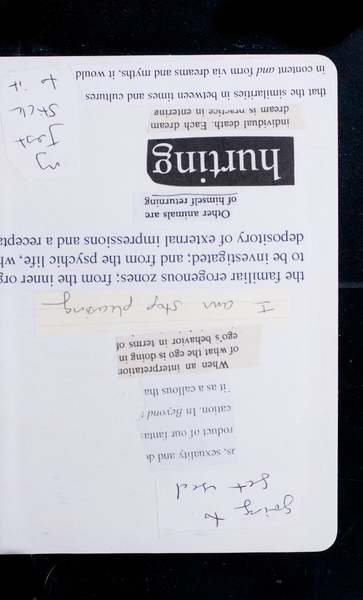 going to
get used
as, sexuality and d
roduct of our fanta
cation. In Beyond
it as a callous tha
When an interpretation
of what the ego is doing in
ego's behavior in terms of
I am stop pleasing
the familiar erogenous zones; from the inner org
to be investigated; and from the psychic life, wh
depository of external impressions and a recepta
Other animals are
of himself returning
hurting
individual death. Each dream
dream is practice in entering
my
stick
to it
that the similarities in between times and cultures
in content and form via dreams and myths, it would